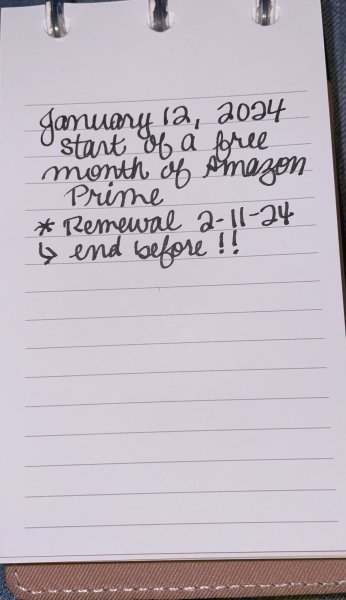 January 12, 2024
start of a free
month of Amazon
Prime
* Renewal 2-11-24
↳ end before !!